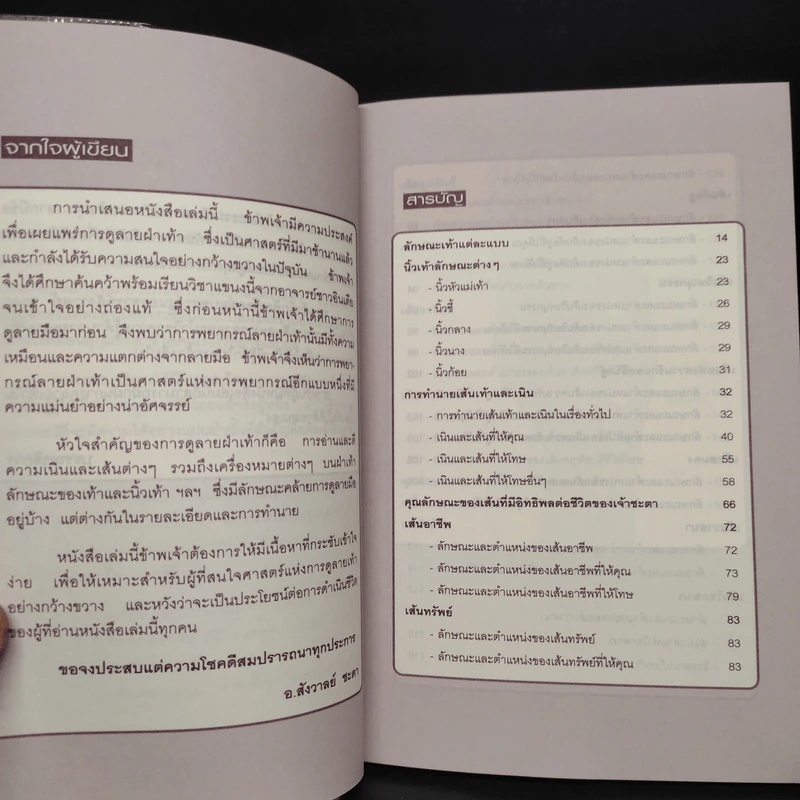 จากใจผู้เขียน
การนำเสนอหนังสือเล่มนี้ ข้าพเจ้ามีความประสงค์
เพื่อเผยแพร่การดูลายฝ่าเท้า ซึ่งเป็นศาสตร์ที่มีมาช้านานแล้ว
และกำลังได้รับความสนใจอย่างกว้างขวางในปัจุบัน ข้าพเจ้า
จึงได้ศึกษาค้นคว้าพร้อมเรียนวิชาแขนงนี้จากอาจารย์ชาวอินเดีย
จนเข้าใจอย่างถ่องแท้ ซึ่งก่อนหน้านี้ข้าพเจ้าได้ศึกษาการ
ดูลายมือมาก่อน จึงพบว่าการพยากรณ์ลายฝ่าเท้านั้นมีทั้งความ
เหมือนและความแตกต่างจากลายมือ ข้าพเจ้าจึงเห็นว่าการพยา-
กรณ์ลายฝ่าเท้าเป็นศาสตร์แห่งการพยากรณ์อีกแบบหนึ่งที่มี
ความแม่นยำอย่างน่าอัศจรรย์
หัวใจสำคัญของการดูลายฝ่าเท้าก็คือ การอ่านและตี
ความเนินและเส้นต่างๆ รวมถึงเครื่องหมายต่างๆ บนฝ่าเท้า
ลักษณะของเท้าและนิ้วเท้า ฯลฯ ซึ่งมีลักษณะคล้ายการดูลายมือ
อยู่บ้าง แต่ต่างกันในรายละเอียดและการทำนาย
หนังสือเล่มนี้ข้าพเจ้าต้องการให้มีเนื้อหาที่กระชับเข้าใจ
ง่าย เพื่อให้เหมาะสำหรับผู้ที่สนใจศาสตร์แห่งการดูลายเท้า
อย่างกว้างขวาง และหวังว่าจะเป็นประโยชน์ต่อการดำเนินชีวิต
ของผู้ที่อ่านหนังสือเล่มนี้ทุกคน
ขอจงประสบแต่ความโชคดีสมปรารถนาทุกประการ
อ.สังวาลย์ ชะตา
สารบัญ
ลักษณะเท้าแต่ละแบบ 14
นิ้วเท้าลักษณะต่างๆ 23
- นิ้วหัวแม่เท้า 23
- นิ้วชี้ 26
- นิ้วกลาง 29
- นิ้วนาง 29
- นิ้วก้อย 31
การทำนายเส้นเท้าและเนิน 32
- การทำนายเส้นเท้าและเนินในเรื่องทั่วไป 32
- เนินและเส้นที่ให้คุณ 40
- เนินและเส้นที่ให้โทษ 55
- เนินและเส้นที่ให้โทษอื่นๆ 58
คุณลักษณะของเส้นที่มีอิทธิพลต่อชีวิตของเจ้าชะตา 66
เส้นอาชีพ 72
- ลักษณะและตำแหน่งของเส้นอาชีพ 72
- ลักษณะและตำแหน่งของเส้นอาชีพที่ให้คุณ 73
- ลักษณะและตำแหน่งของเส้นอาชีพที่ให้โทษ 79
เส้นทรัพย์ 83
- ลักษณะและตำแหน่งของเส้นทรัพย์ 83
- ลักษณะและตำแหน่งของเส้นทรัพย์ที่ให้คุณ 83